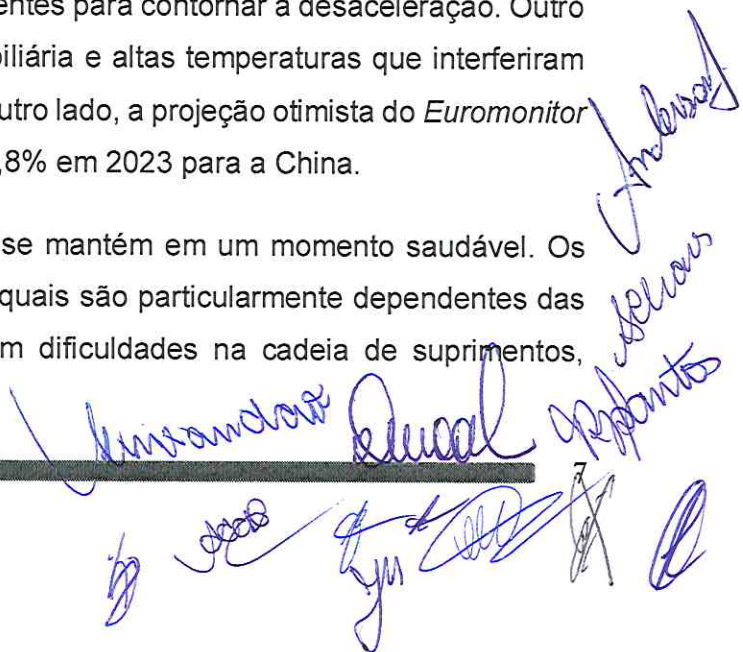 entes para contornar a desaceleração. Outro
biliária e altas temperaturas que interferiram
utro lado, a projeção otimista do Euromonitor
,8% em 2023 para a China.
se mantém em um momento saudável. Os
quais são particularmente dependentes das
m dificuldades na cadeia de suprimentos,
7